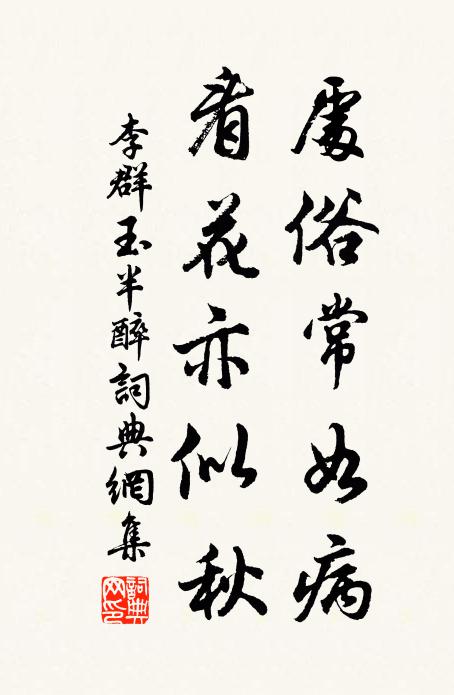 處俗常如病
看花亦似秋
李群玉半醉詞典網集
詞典網印